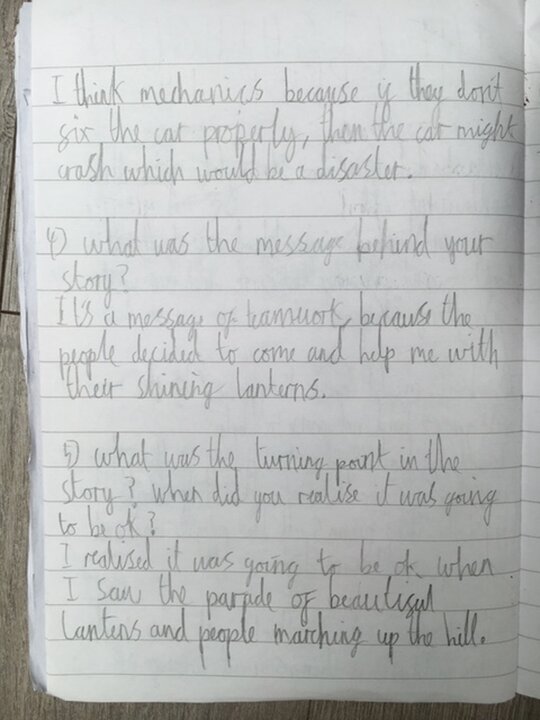 I think mechanics because if they don't
fix the car properly, then the car might
crash which would be a disaster.
4) what was the message behind your
story?
It's a message of teamwork, because the
people decided to come and help me with
their shining lanterns.
5) what was the turning point in the
story? when did you realise it was going
to be ok?
I realised it was going to be ok when
I saw the parade of beautiful
lantens and people marching up the hill.